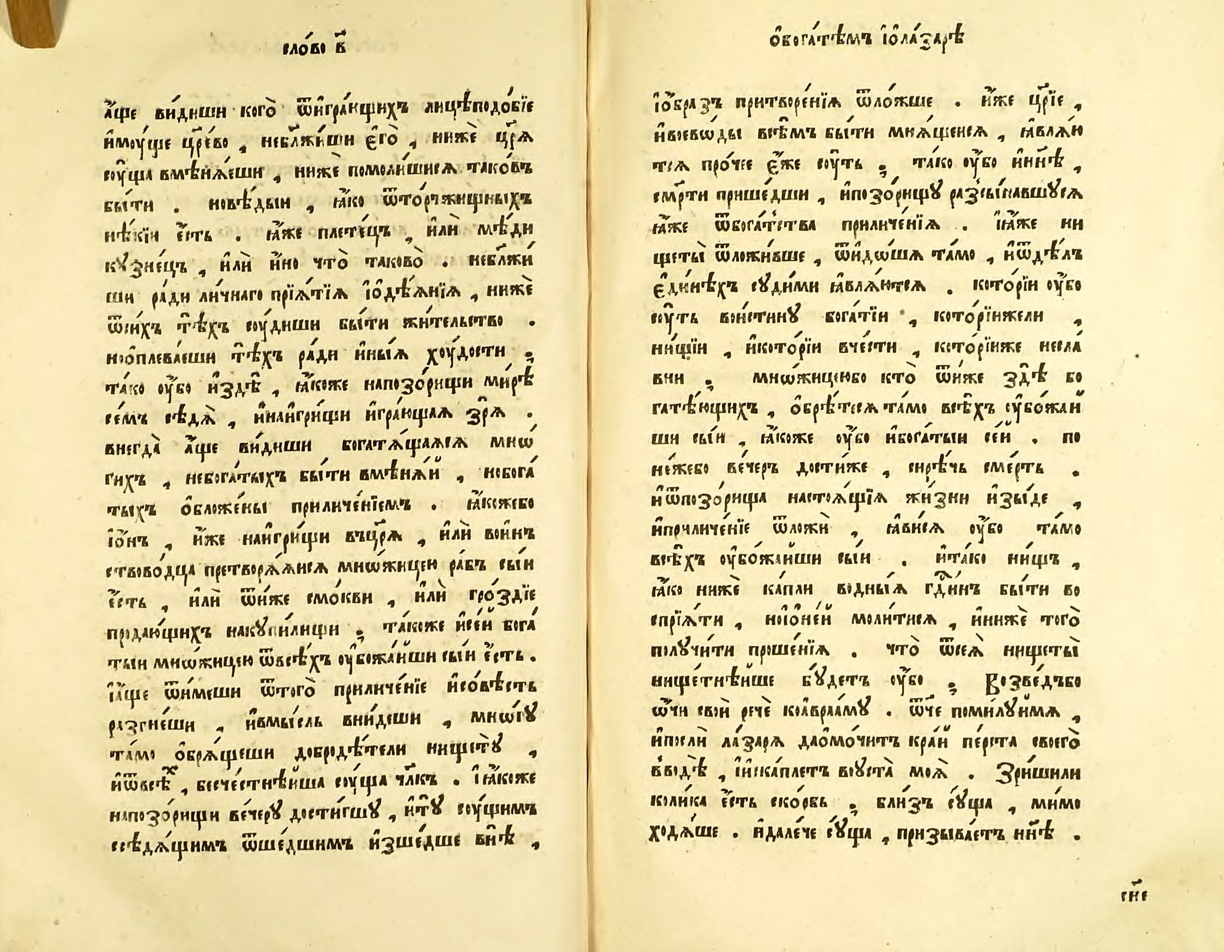 сло́во в҃
а҆́ще ви́диши кого̀ ѿи҆гра́ющихъ лицѣподо́бїе
и҆моу́ще цр҃е́во , небл҃жи́ши є҆го̀ , нижѐ цр҃ѧ̀
сꙋ́ща вмѣнѧ́еши , нижѐ помоли́шисѧ тако́въ
бы́ти . новѣ́дыи , ꙗ҆́кѡ ѿторжи́щныхъ
нѣ́кїи є҆́сть . ꙗ҆́же плете́цъ , и҆лѝ мѣ́ди
кꙋзне́цъ , и҆лѝ и҆́но что̀ таково̀ . небл҃жи
ши ра́ди ли́чнаго прїѧ́тїѧ і҆ѡ҆дѣѧ́нїѧ , нижѐ
ѿси́хъ тѣ́хъ сꙋ́диши бы́ти жи́тельство .
нѡ҆плева́еши тѣ́хъ ра́ди и҆ны́ѧ хꙋ́дости ;
та́ко ᲂу҆́бо и҆здѣ̀ , ꙗ҆́коже напозо́рищи ми́рѣ
се́мъ сѣдѧ̀ , и҆наи҆гри́щи и҆гра́ющаѧ зрѧ̀ .
внегда̀ а҆́ще ви́диши богатѧ́щаѧсѧ мнѡ́
гихъ , небога́тыхъ бы́ти вмѣнѧ́й , нобога́
тыхъ ѻ҆бложе́ны приличе́нїемъ . ꙗ҆́кожебо
і҆ѻ҆́нъ , и҆́же наи҆гри́щи въцр҃ѧ̀ , и҆лѝ во́инъ
ствово́дца претворѧ́ѧисѧ мно́жицею ра́бъ сы́и
є҆́сть , и҆лѝ ѿи҆́же смо́кви , и҆лѝ гро́здїе
продаю́щихъ накꙋпи́лищи ; та́коже и҆се́й бога́
тыи мно́жицею ѿвсѣ́хъ ᲂу҆бо́жайши сы́и є҆́сть .
і҆а҆́ще ѿи҆́меши ѿтого̀ приличе́нїе и҆со́вѣсть
разгне́ши , и҆вмы́сль вни́деши , мно́гꙋ
та́мо ѻ҆брѧ́щеши добродѣ́тели нищетꙋ̀ ,
и҆ѿвсѣ́хъ , бесче́стнѣйша сꙋ́ща чл҃к . і҆ꙗ҆́коже
напозо́рищи ве́черꙋ дости́гшꙋ , и҆тꙋ̀ сꙋ́щимъ
ссѣдѧ́щимъ ѿше́дшимъ и҆зше́дше внѣ̀ ,
ѻ҆бога́тѣмъ і҆ѻ҆ла́зарѣ
і҆ѻ҆́бразъ притворе́нїѧ ѿло́жше . и҆́же цр҃їе ,
и҆воево́ды всѣ́мъ бы́ти мнѧ́щеисѧ , ꙗ҆влѧ́ю
тсѧ про́чее є҆́же сꙋ́ть ; та́ко ᲂу҆́бо и҆нн҃ѣ ,
см҃рти прише́дши , и҆позо́рищꙋ разсы́павшꙋсѧ
ꙗ҆́же ѿбога́тства приличе́нїѧ . і҆ꙗ҆́же ни
щеты̀ ѿложи́вше , ѿи҆до́шѧ та́мо , и҆ѿдѣ́лъ
є҆ди́нѣхъ сꙋди́ми ꙗ҆влѧ́ютсѧ . кото́рїи ᲂу҆́бо
сꙋ́ть вои́стинꙋ бога́тїи , кото́рїижели ,
ни́щїи , и҆кото́рїи вче́сти , кото́рїиже несла́
вни ; мно́жицеюбо кто̀ ѿи҆́же здѣ̀ бо
гатѣ́ющихъ , ѻ҆брѣ́тсѧ та́мо всѣ́хъ ᲂу҆бо́жай
ши сы́и , ꙗ҆́коже ᲂу҆́бо и҆бога́тыи се́й . по
не́жебо ве́черъ дости́же , си́рѣчь сме́рть .
и҆ѿпозо́рища настоѧ́щїѧ жи́зни и҆зы́де ,
и҆приличе́нїе ѿложѝ , ꙗ҆ви́сѧ ᲂу҆́бо та́мо
всѣ́хъ ᲂу҆бо́жайши сы́и . и҆та́ко ни́щъ ,
ꙗ҆́кѡ нижѐ ка́пли во́дныѧ гд҃и́нъ бы́ти во
спрїѧ́ти , нѡ҆ѻ҆не́й моли́тисѧ , и҆нижѐ того̀
полꙋчи́ти проше́нїѧ . что̀ ѿсеѧ̀ нищеты̀
нище́тнѣйше бꙋ́детъ ᲂу҆́бо ; Возве́дъбо
ѡ҆́чи свои̑ речѐ коа҆враа́мꙋ . ѿ҆́че поми́лꙋимѧ ,
и҆послѝ ла́зарѧ даѡ҆мо́читъ кра́й пе́рста своего̀
вводѣ̀ , і҆иска́плетъ воу҆ста̀ моѧ̀ . Зри́шили
коли́ка є҆́сть ско́рбь ; бли́зъ сꙋ́ща , ми́мо
хожда́ше . и҆дале́че сꙋ́ща , призыва́етъ нн҃ѣ .
сн҃е